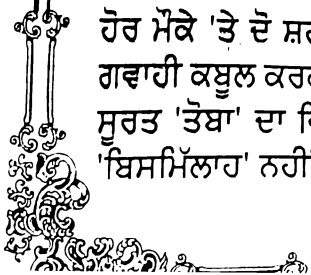 ਹੋਰ ਮੌਕੇ 'ਤੇ ਦੋ
ਗਵਾਹੀ ਕਬੂਲ
ਸੂਰਤ 'ਤੋਬਾ' ਦਾ
'ਬਿਸਮਿੱਲਾਹ' ਨਹੀਂ